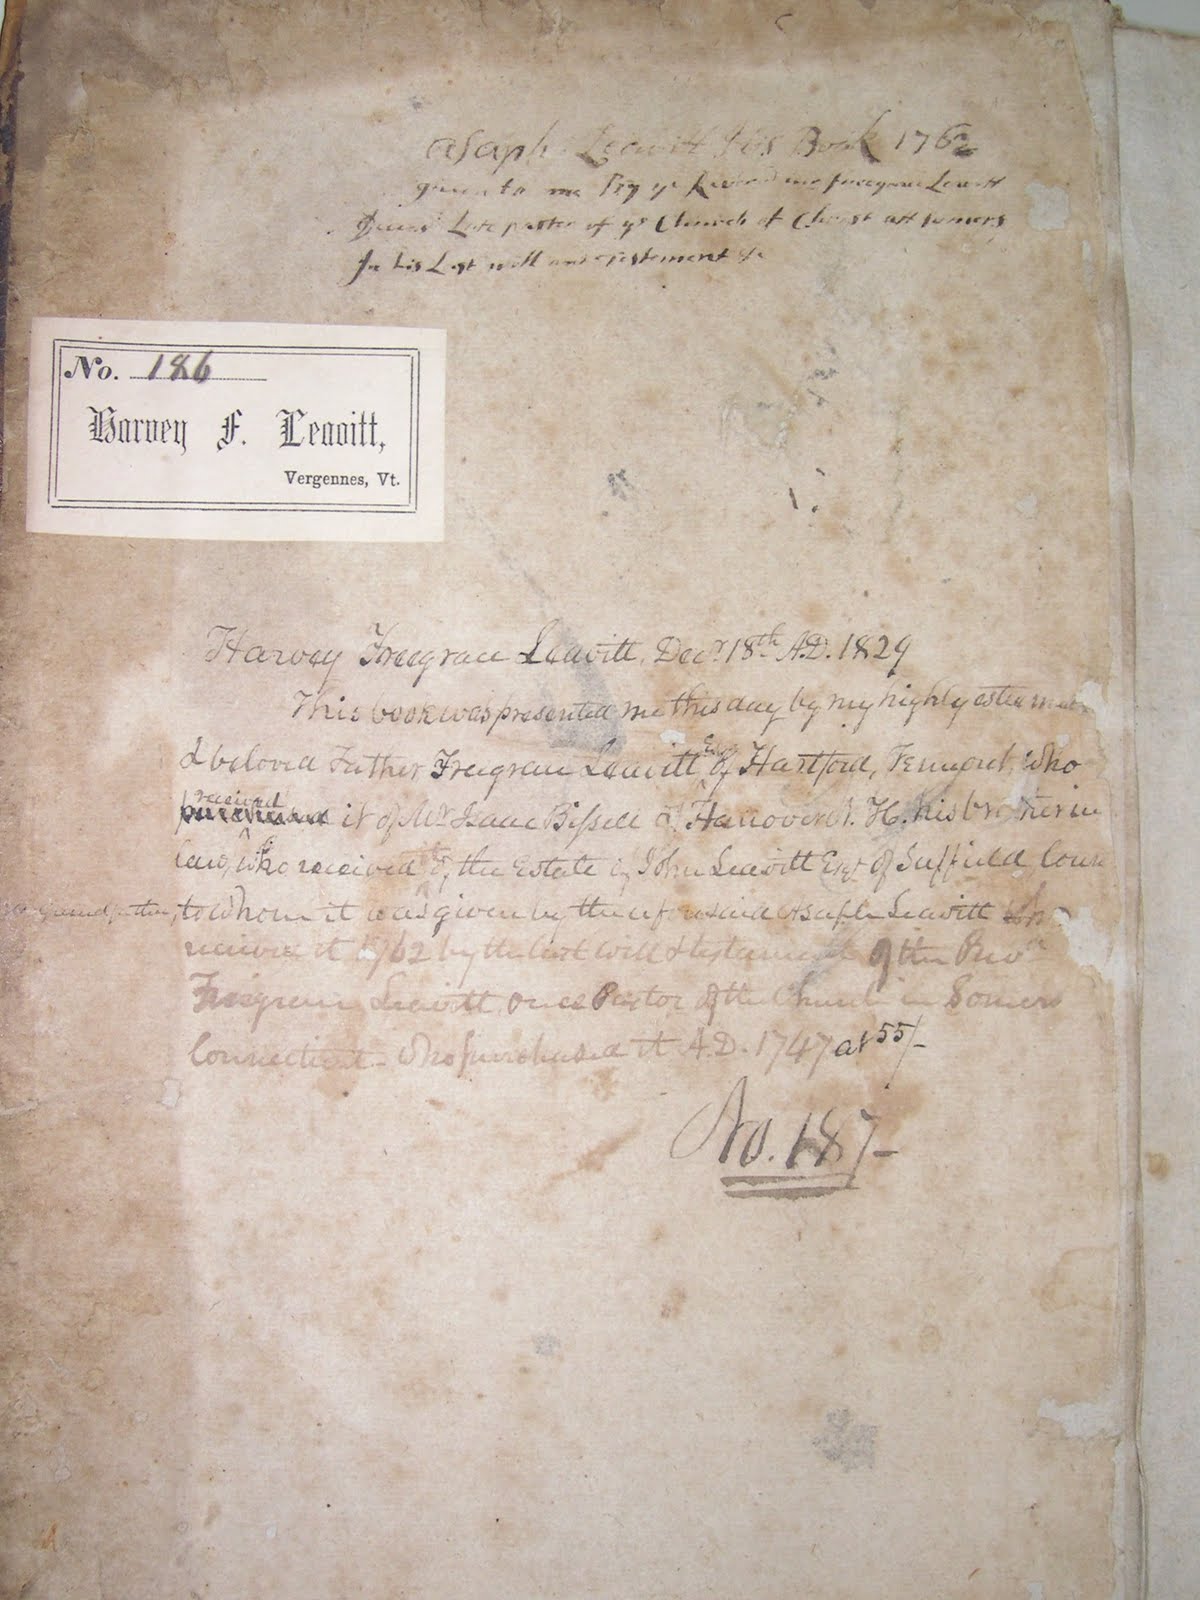 Asaph Leavitt His Book 1762
given to me By ye Revernd mr freegrace Leavitt
Late paster of ye Church of Christ att somers
In his Last will and Testement &c
No. 186
Harvey F. Leavitt,
Vergennes, Vt.
Harvey Freegrace Leavitt, Decr. 18th A.D. 1829
This book was presented me this day by my highly esteemed
& beloved Father Freegrace Leavitt Esqr of Hartford, Vermont, who
received it of Mr Isaac Bissell of Hanover N. H. his brother in
law, who received it of the Estate of John Leavitt Esqr of Suffield Conn
grandfather, to whom it was given by the aforesaid Asaph Leavitt who
received it 1762 by the last will & testament of the Revd
Freegrace Leavitt, once Pastor of the Church in Somers
Connecticut - who purchased it A.D. 1747 at 55/-
No. 187-